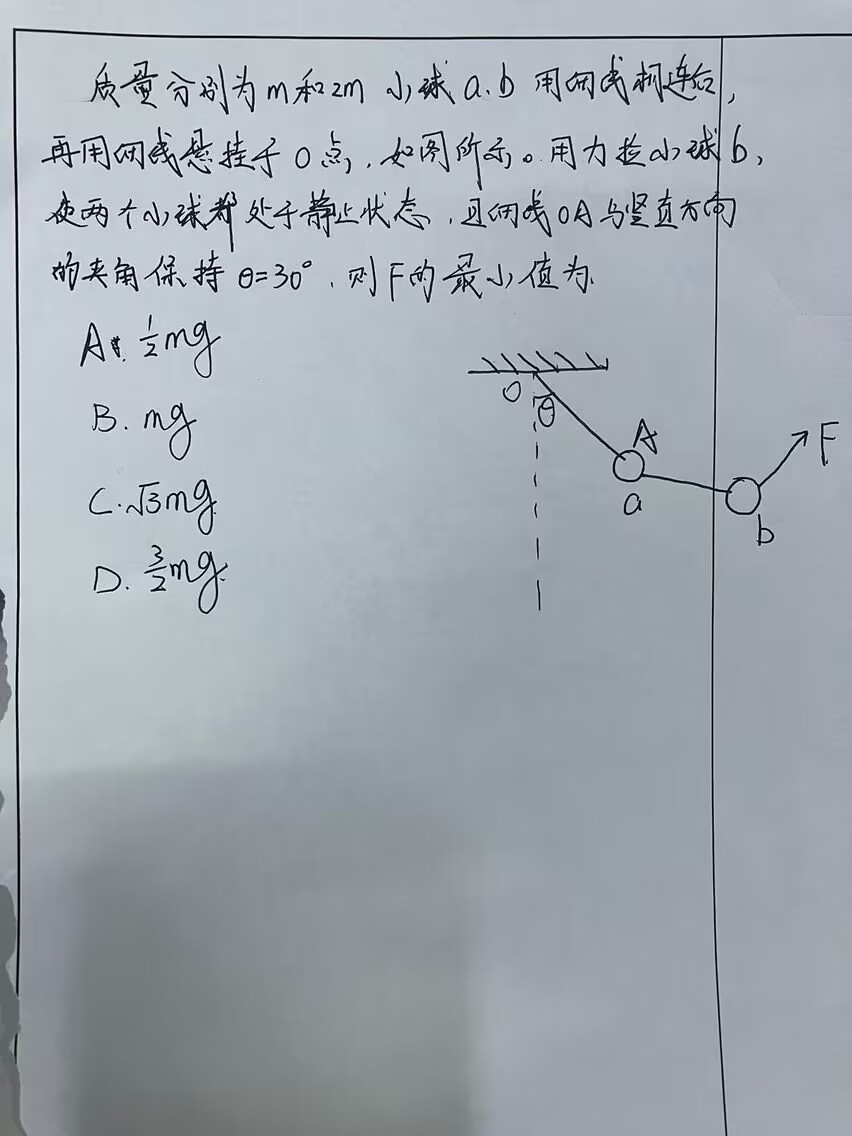 质量分别为m和2m 小球a.b 用细线相连后,
再用细线悬挂于O点, 如图所示。用力拉小球b,
使两个小球都处于静止状态, 且细线OA与竖直方向
的夹角保持θ=30°, 则F的最小值为
A. 1/2 mg
B. mg
C. √3mg
D. 3/2 mg.
O
θ
A
a
b
F